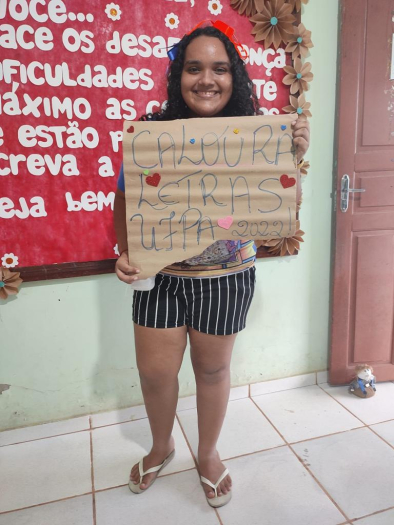 VOCÊ...
ace os desa
ificuldades
máximo as
e estão p
screva a
eja bem
CALOURA
LETRAS
UFPA 2022!